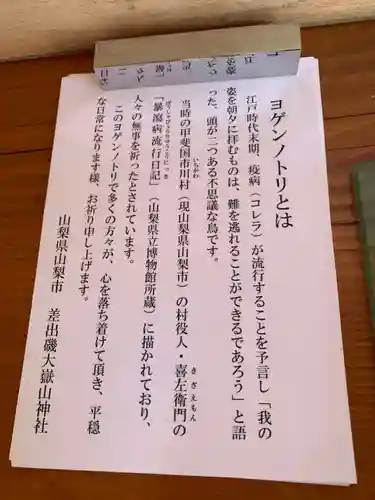 ヨゲンノトリとは
江戸時代末期、疫病（コレラ）が流行することを予言し「我の
姿を朝夕に拝むものは、難を逃れることができるであろう」と語
った、頭が二つある不思議な鳥です。
当時の甲斐国市川村（現山梨県山梨市）の村役人・喜左衛門の
いちかわ
きざえもん
「暴瀉病流行日記」（山梨県立博物館所蔵）に描かれており、
ぼうしゃびょうりゅうこうにっき
人々の無事を祈ったとされています。
このヨゲンノトリで多くの方々が、心を落ち着けて頂き、平穏
な日常になります様、お祈り申し上げます。
山梨県山梨市　差出磯大嶽山神社